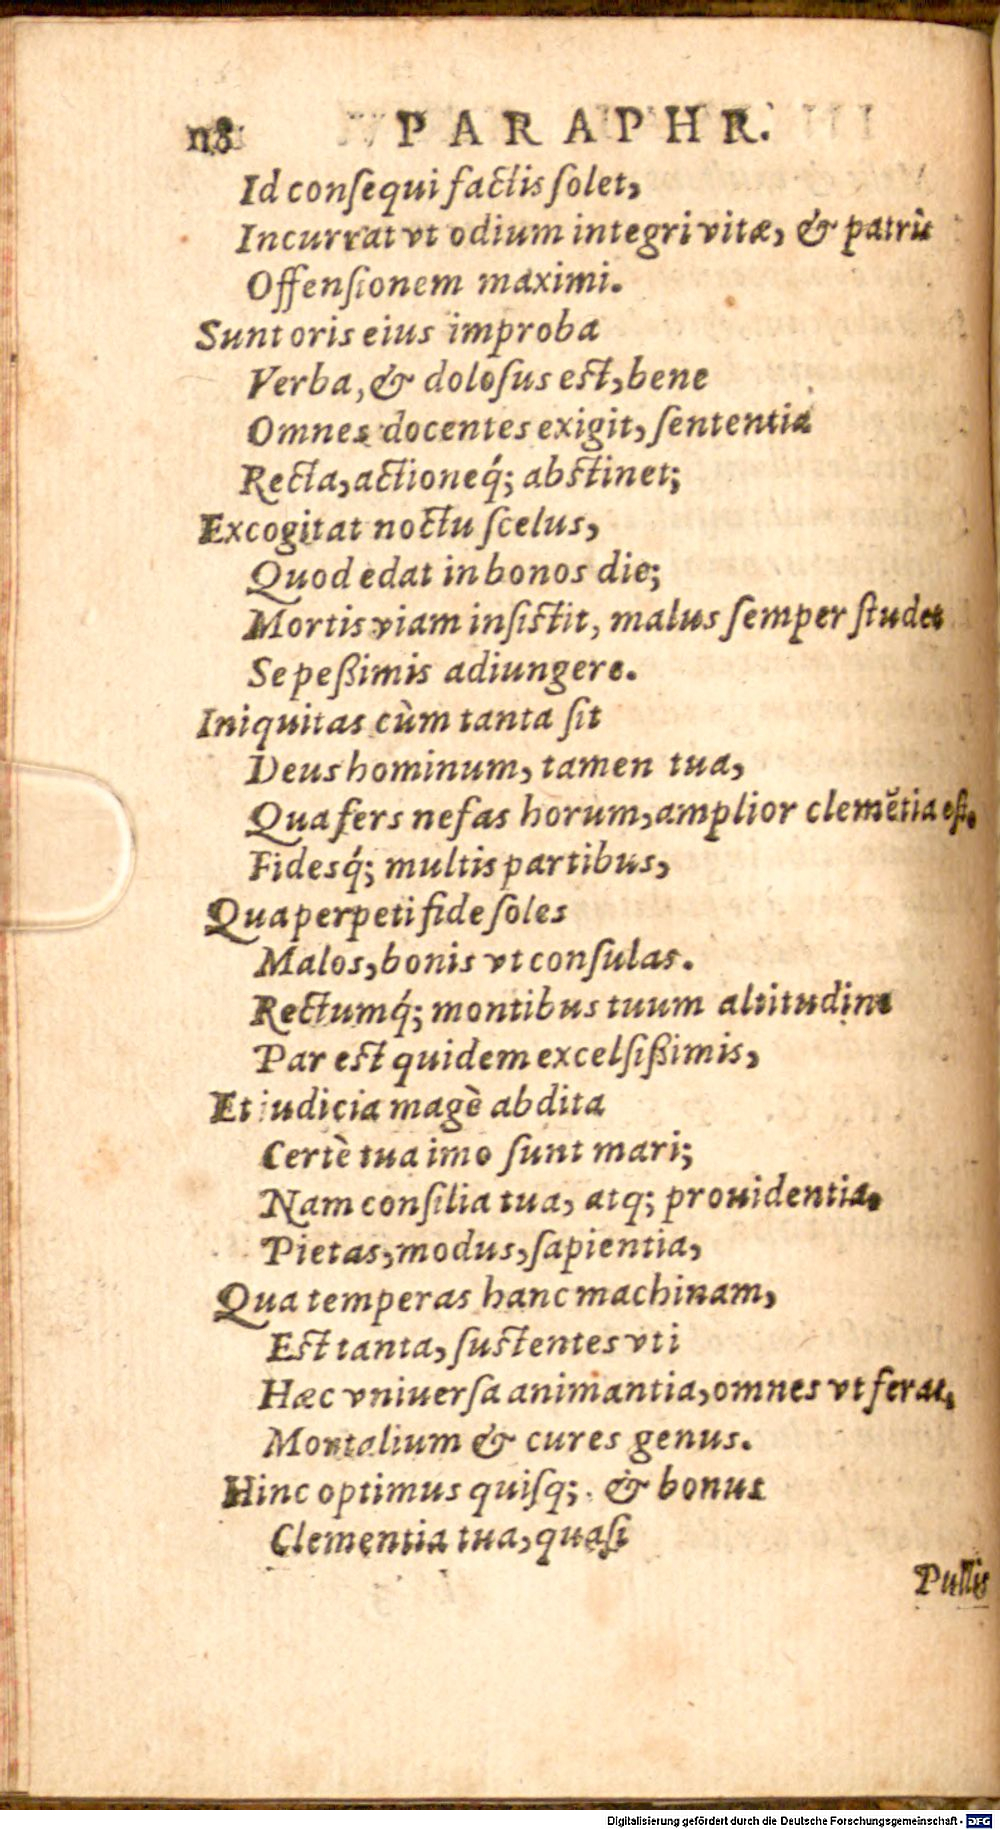 118 PARAPHR.
Id consequi factis solet,
Incurrat vt odium integri vitæ, & patrũ
Offensionem maximi.
Sunt oris eius improba
Verba, & dolosus est, bene
Omnes docentes exigit, sententia
Recta, actioneq́; abstinet;
Excogitat noctu scelus,
Quod edat in bonos die;
Mortis viam insistit, malus semper studet
Se peßimis adiungere.
Iniquitas cùm tanta sit
Deus hominum, tamen tua,
Qua fers nefas horum, amplior clemẽtia est.
Fidesq́; multis partibus,
Qua perpeti fide soles
Malos, bonis vt consulas.
Rectumq́; montibus tuum altitudine
Par est quidem excelsißimis,
Et iudicia magè abdita
Certè tua imo sunt mari;
Nam consilia tua, atq; prouidentia.
Pietas, modus, sapientia,
Qua temperas hanc machinam,
Est tanta, sustentes vti
Hæc vniuersa animantia, omnes vt feras,
Mortalium & cures genus.
Hinc optimus quisq; & bonus
Clementia tua, quasi
Pullis
Digitalisierung gefördert durch die Deutsche Forschungsgemeinschaft - DFG